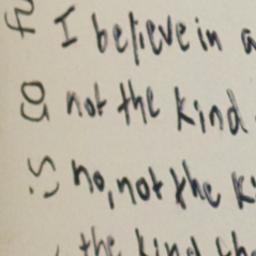 I believe in a
not the kind
no, not the
the kind